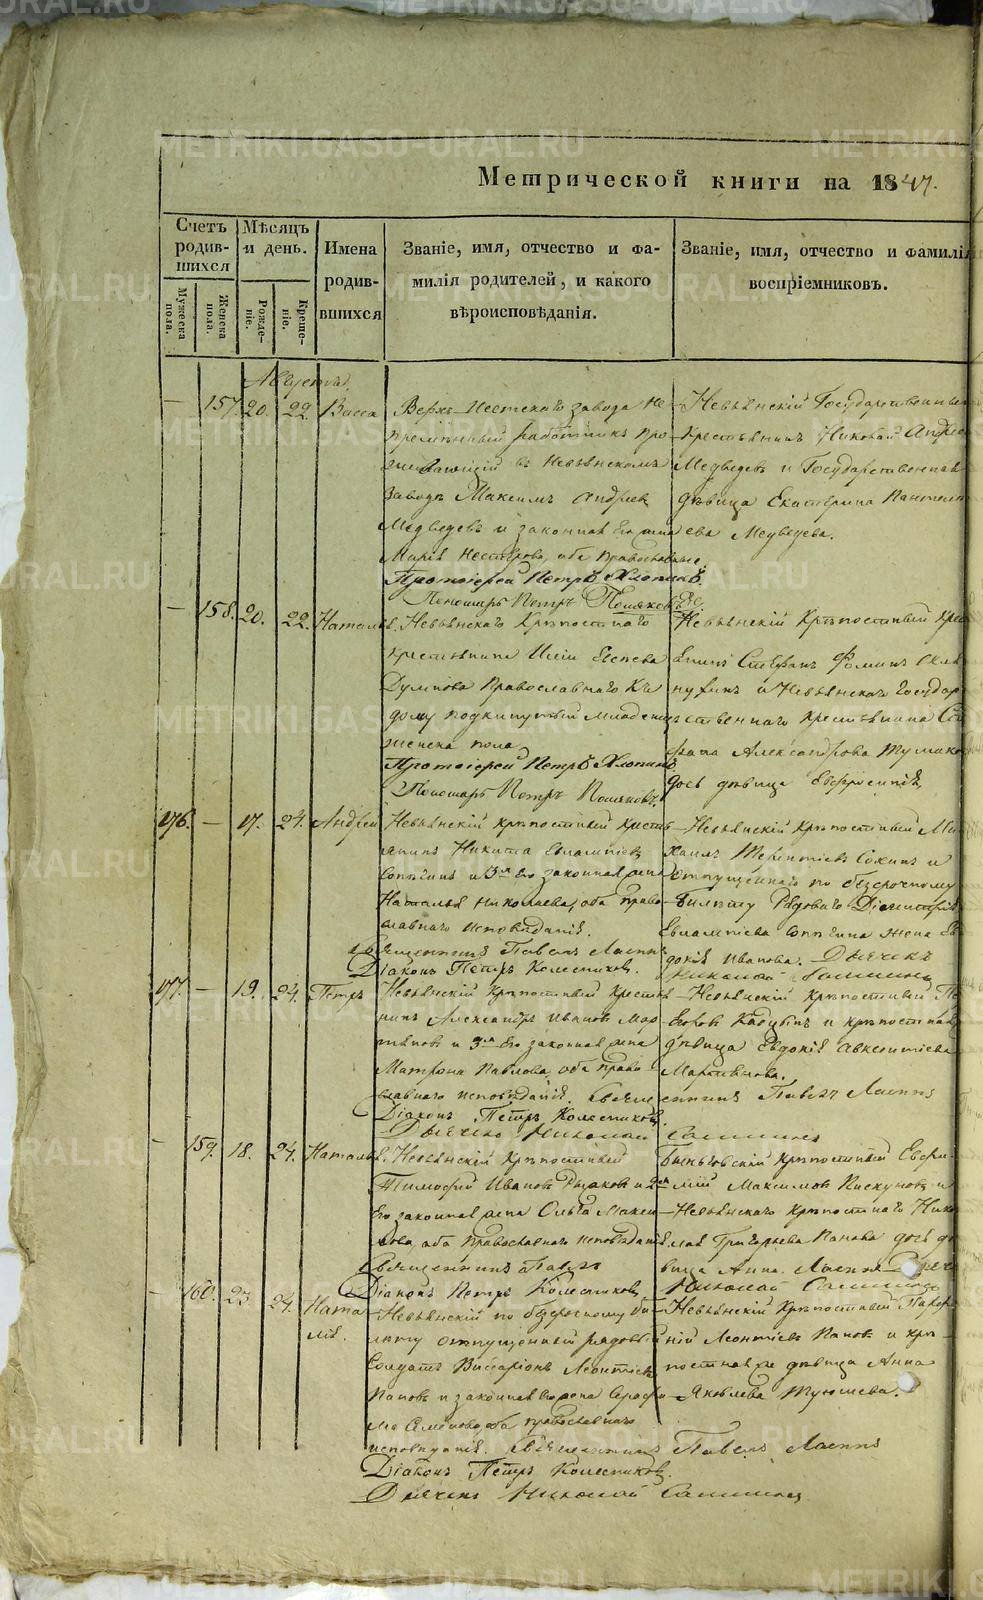 METRIKI.GASO-URAL.RU
Метрической книги на 1847.
Счетъ родив-шихся
Мѣсяцъ и день.
Имена родив-вшихся
Званіе, имя, отчество и фа-
милія родителей, и какого
вѣроисповѣданія.
Званіе, имя, отчество и фамилія
воспріемниковъ.
Мужеска пола.
Женска пола.
Рожде-ніе.
Креще-ніе.
Августа.
— 157. 20. 22. Васса
Верхъ-Исетскаго завода не-
премѣнный работникъ про-
живающій въ Невьянскомъ
заводѣ Максимъ Андреев
Медведевъ и законная его жена
Марія Нестерова, оба православные
Протоіерей Петръ Хлопинъ.
Пономарь Петръ Поляковъ.
Невьянскій Государственный
крестьянинъ Николай Андре
Медведевъ и Государственная
дѣвица Екатерина Пантеле
ева Медведева.
— 158. 20. 22. Наталья
Невьянскаго Крѣпостнаго
крестьянина Иліи Евсѣева
Православнаго къ
дому подкинутый младенецъ
женска пола
Протоіерей Петръ Хлопинъ
Пономарь Петръ Поляковъ.
Невьянскій Крѣпостный крес
янинъ Стефанъ Фоминъ
и Невьянскаго Государ
ственнаго крестьянина
Александрова
дочь дѣвица Евфросинія.
176. — 17. 24. Андрей
Невьянскій крѣпостный кресть
янинъ Никита Евлампіевъ
и 3мъ его законная жена
Наталья Николаева, оба право
славнаго исповѣданія.
Священникъ Павелъ
Діаконъ Петръ Колесниковъ.
Невьянскій крѣпостный Ми
хаилъ Терентіевъ и
отпущеннаго по безсрочному
билету Рядоваго Димитрія
Евлампіева жена Ев
докія Иванова. Дьячекъ
Николай
177. — 19. 24. Петръ
Невьянскій крѣпостный кресть
нинъ Александръ Ивановъ Мар
тьяновъ и 3мъ его законная жена
Матрона Павлова, оба право
славнаго исповѣданія. Священникъ Павелъ
Діаконъ Петръ Колесниковъ.
Дьячекъ Николай
Невьянскій крѣпостный Пе
Егоровъ и крѣпостная
дѣвица Евдокія Авксентіева
Мартьянова.
— 159. 18. 24. Наталья
Невьянскій Крѣпостный
Тимофей Ивановъ и 2мъ
Его законная жена Ольга Макси
мова, оба Православнаго исповѣданія
Священникъ Павелъ
Діаконъ Петръ Колесниковъ
Быньговскій крѣпостный Евфи
мій Максимовъ Пискуновъ и
Невьянскаго крѣпостнаго Нико
лая Григорьева Панова дочь дѣ
вица Анна.
Николай
— 160. 23. 24. Ната
лія.
Невьянскій по безсрочному би
лету отпущенный рядовый
Солдатъ Виссаріонъ Леонтіевъ
Пановъ и законная его жена Серафи
ма Семенова, оба православнаго
исповѣданія. Священникъ Павелъ
Діаконъ Петръ Колесниковъ.
Дьячекъ Николай
Невьянскій Крѣпостный
Леонтіевъ Пановъ и крѣ
постная же дѣвица Анна
Яковлева